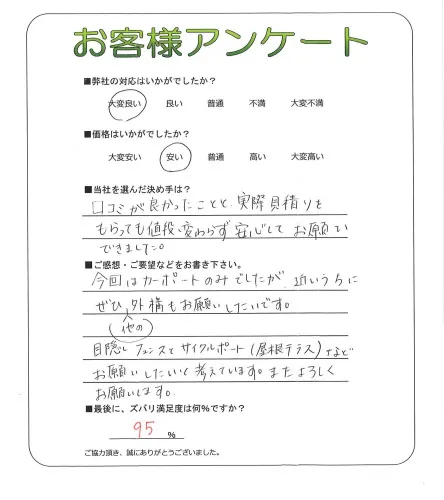 お客様アンケート
■弊社の対応はいかがでしたか？
大変良い 良い 普通 不満 大変不満
■価格はいかがでしたか？
大変安い 安い 普通 高い 大変高い
■当社を選んだ決め手は？
口コミが良かったことと、実際見積りを
もらっても値段変わらず安心してお願い
できました。
■ご感想・ご要望などをお書き下さい。
今回はカーポートのみでしたが、近いうちに
ぜひ外構もお願いしたいです。
他の
目隠しフェンスとサイクルポート(屋根テラス)などで
お願いしたいく考えています。またよろしく
お願いします。
■最後に、ズバリ満足度は何%ですか？
95 %
ご協力頂き、誠にありがとうございました。